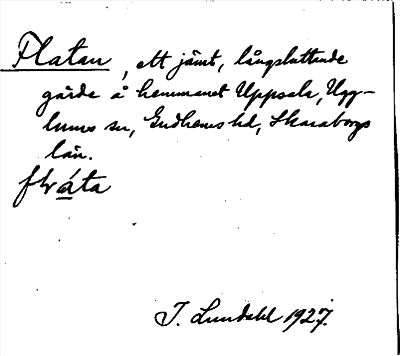 Flatan, ett jämt, långsluttande
gärde å hemmanet Uppsala, Ugg-
lums sn, Gudhems hd, Skaraborgs
län.
flàta
I. Lundahl 1927.